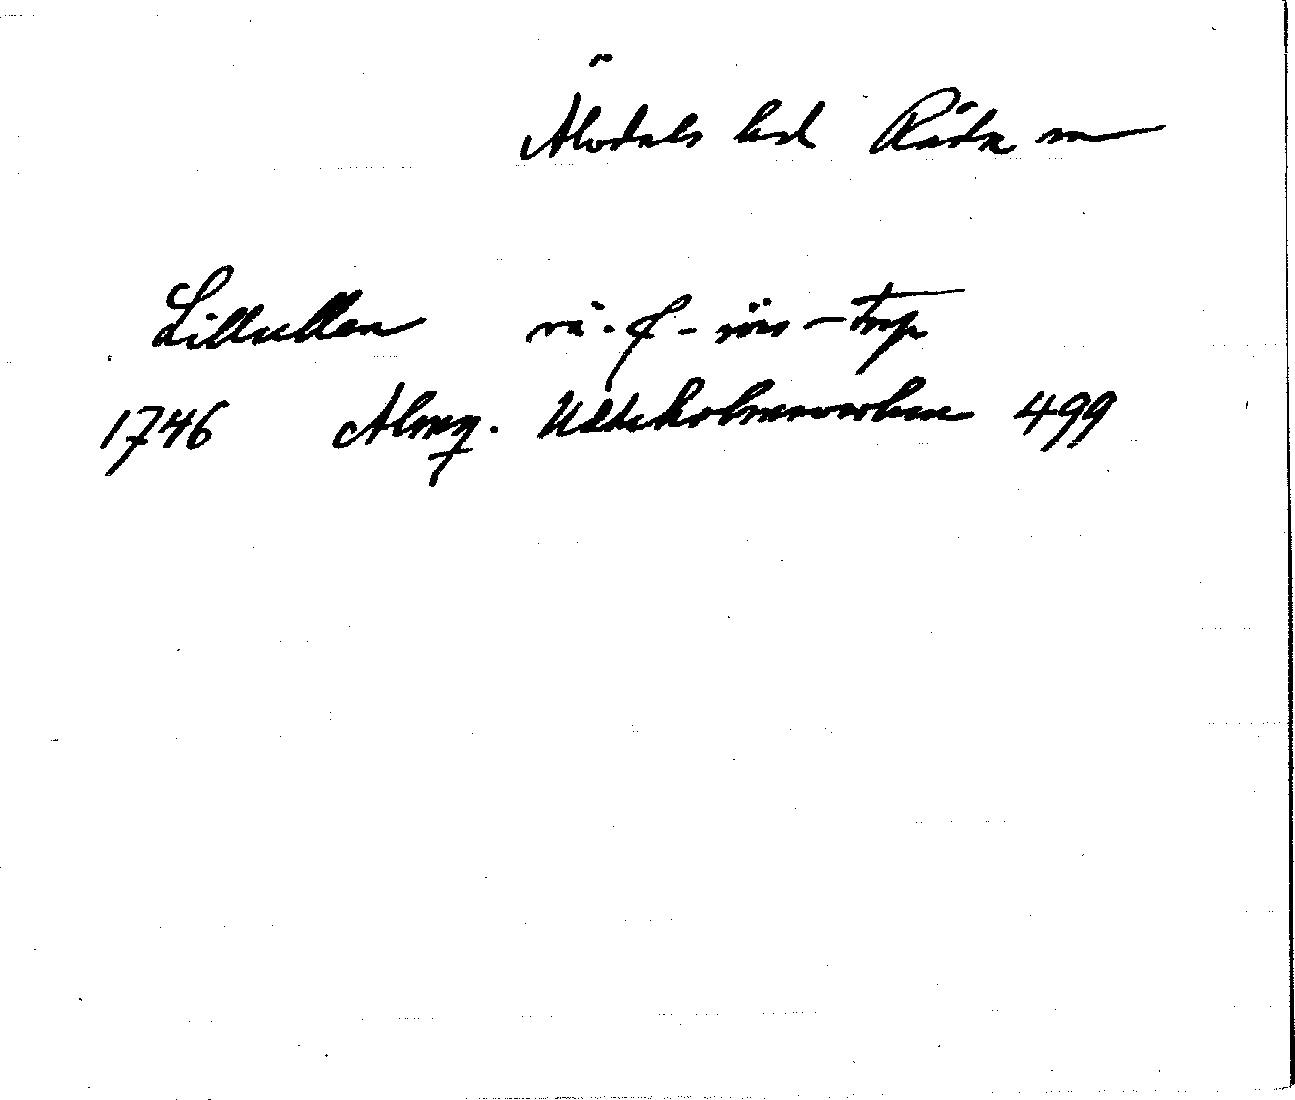 Älvdals hd Råda sn
Lillullen rå. o. f - rös - Torp
1746 Almq. Uddeholmsverken 499